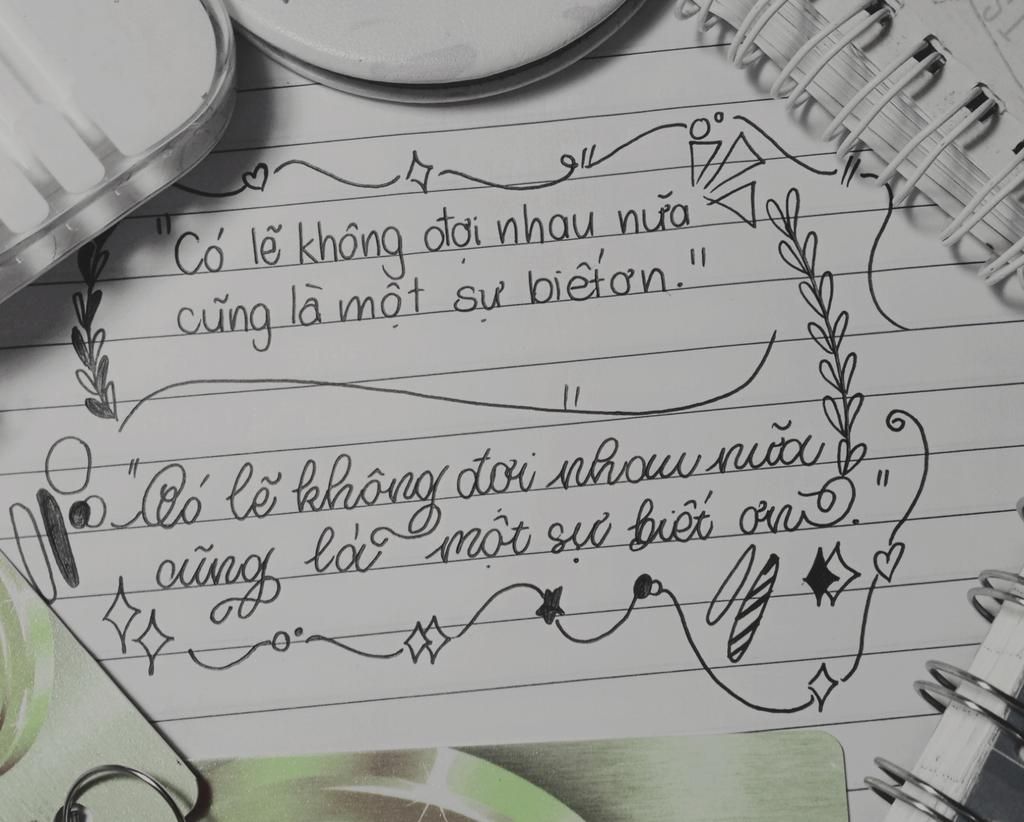 "Có lẽ không đợi nhau nữa
cũng là một sự biết ơn."
"Có lẽ không đợi nhau nữa
cũng là một sự biết ơn."